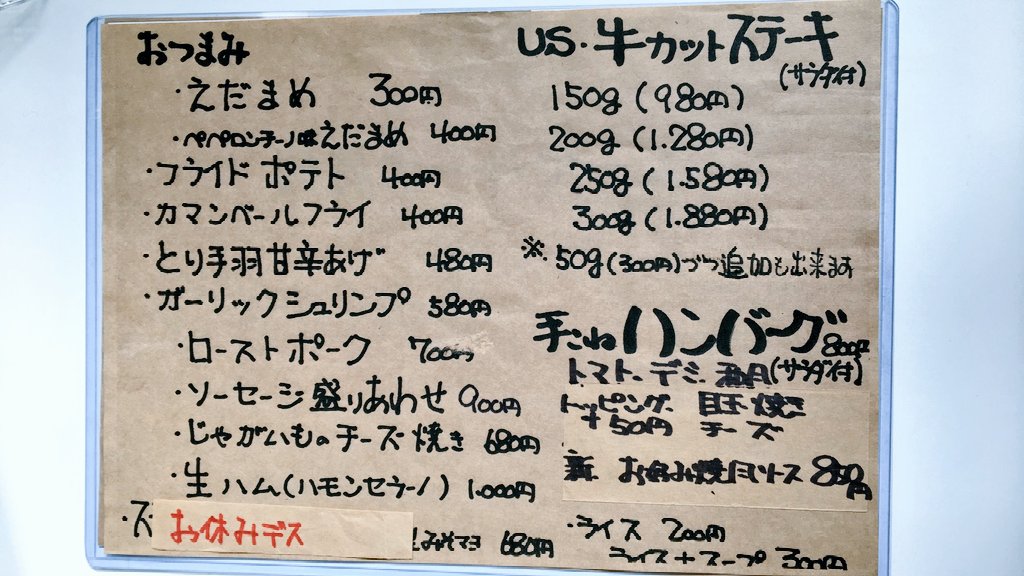 おつまみ
・えだまめ 300円
・ペペロンチーノ味えだまめ 400円
・フライドポテト 400円
・カマンベールフライ 400円
・とり手羽甘辛あげ 480円
・ガーリックシュリンプ 580円
・ローストポーク 700円
・ソーセージ盛りあわせ 900円
・じゃがいものチーズ焼き 680円
・生ハム(ハモンセラーノ) 1.000円
・ズ お休みデス みそマヨ 680円
US・牛カットステーキ
(サラダ付)
150g (980円)
200g (1.280円)
250g (1.580円)
300g (1.880円)
※50g(300円)づつ追加も出来ます
手ごねハンバーグ 800円
トマト、デミ (サラダ付)
トッピング 目玉焼き
+50円 チーズ
新 お好み焼風ソース 850円
・ライス 200円
ライス+スープ 300円